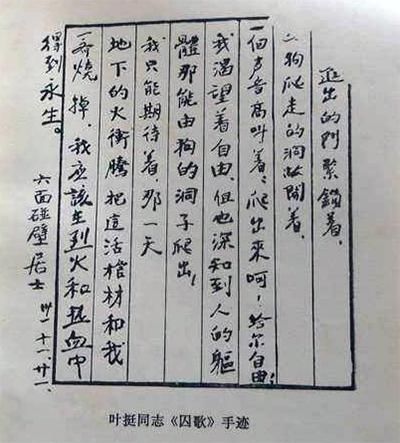 進出的門緊鎖着、
狗爬走的洞敞開着、
一個声音高叫着、爬出來呵！給尔自由！
我渴望着自由、但也深知到人的軀
體那能由狗的洞子爬出！
我只能期待着、那一天
地下的火衝騰 把這活棺材和我
一齊燒掉、我应該在烈火和热血中
得到永生。
六面碰壁居士 卅一、十一、廿一.
叶挺同志《囚歌》手迹